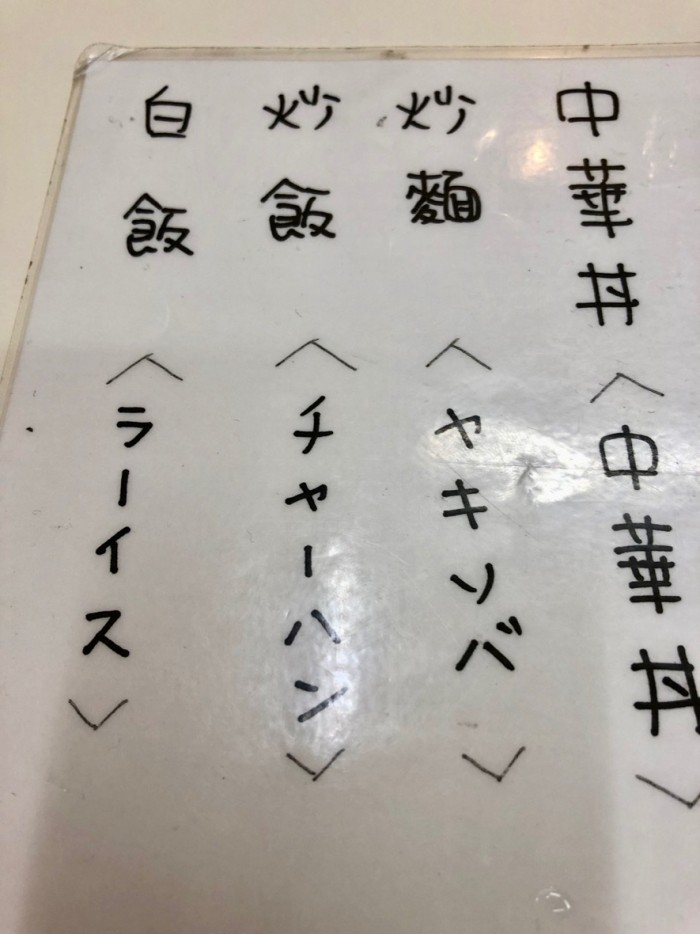 中華丼〈中華丼〉
炒麵〈ヤキソバ〉
炒飯〈チャーハン〉
白飯〈ラーイス〉